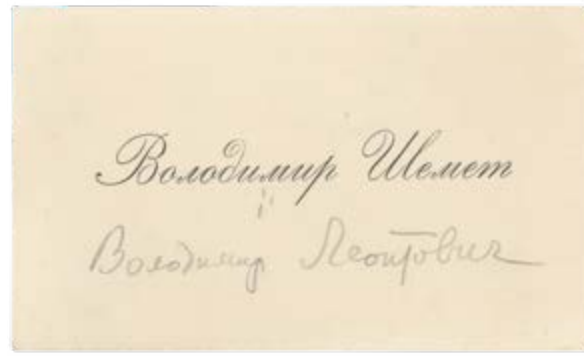 Володимир Шемет
й
Володимир Леонтович